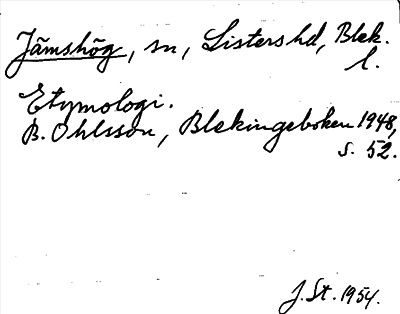 Jämshög, sn, Listers hd, Blek.
l.
Etymologi.
B. Ohlsson, Blekingeboken 1948,
s. 52.
J. St. 1954.